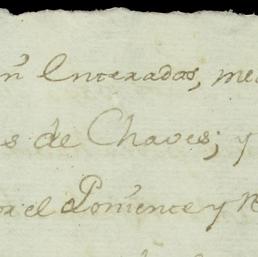 n Enteradas, me
s de Chaves; y
or el Poniente y N